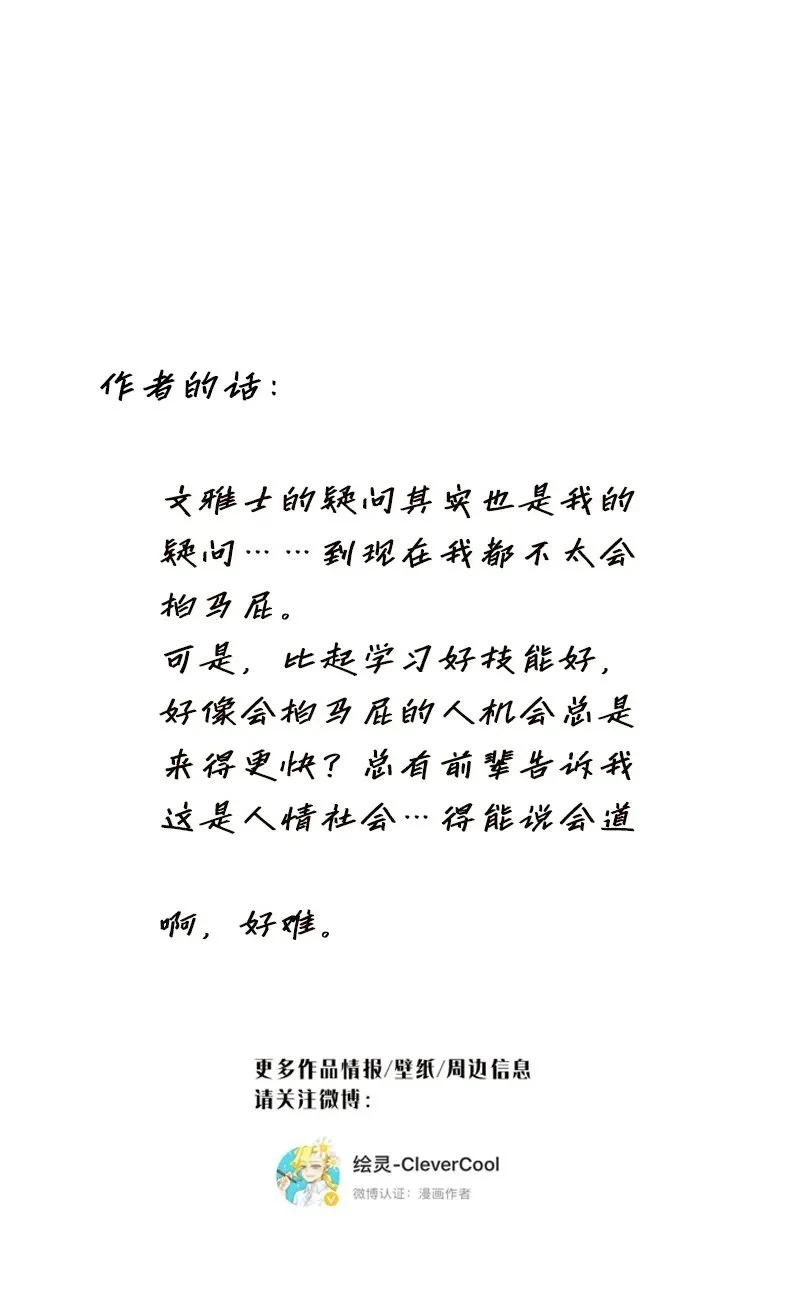 作者的话：
文雅士的疑问其实也是我的
疑问……到现在我都不太会
拍马屁。
可是，比起学习好技能好，
好像会拍马屁的人机会总是
来得更快？总有前辈告诉我
这是人情社会…得能说会道
啊，好难。
更多作品情报/壁纸/周边信息
请关注微博：
绘灵-CleverCool
微博认证：漫画作者